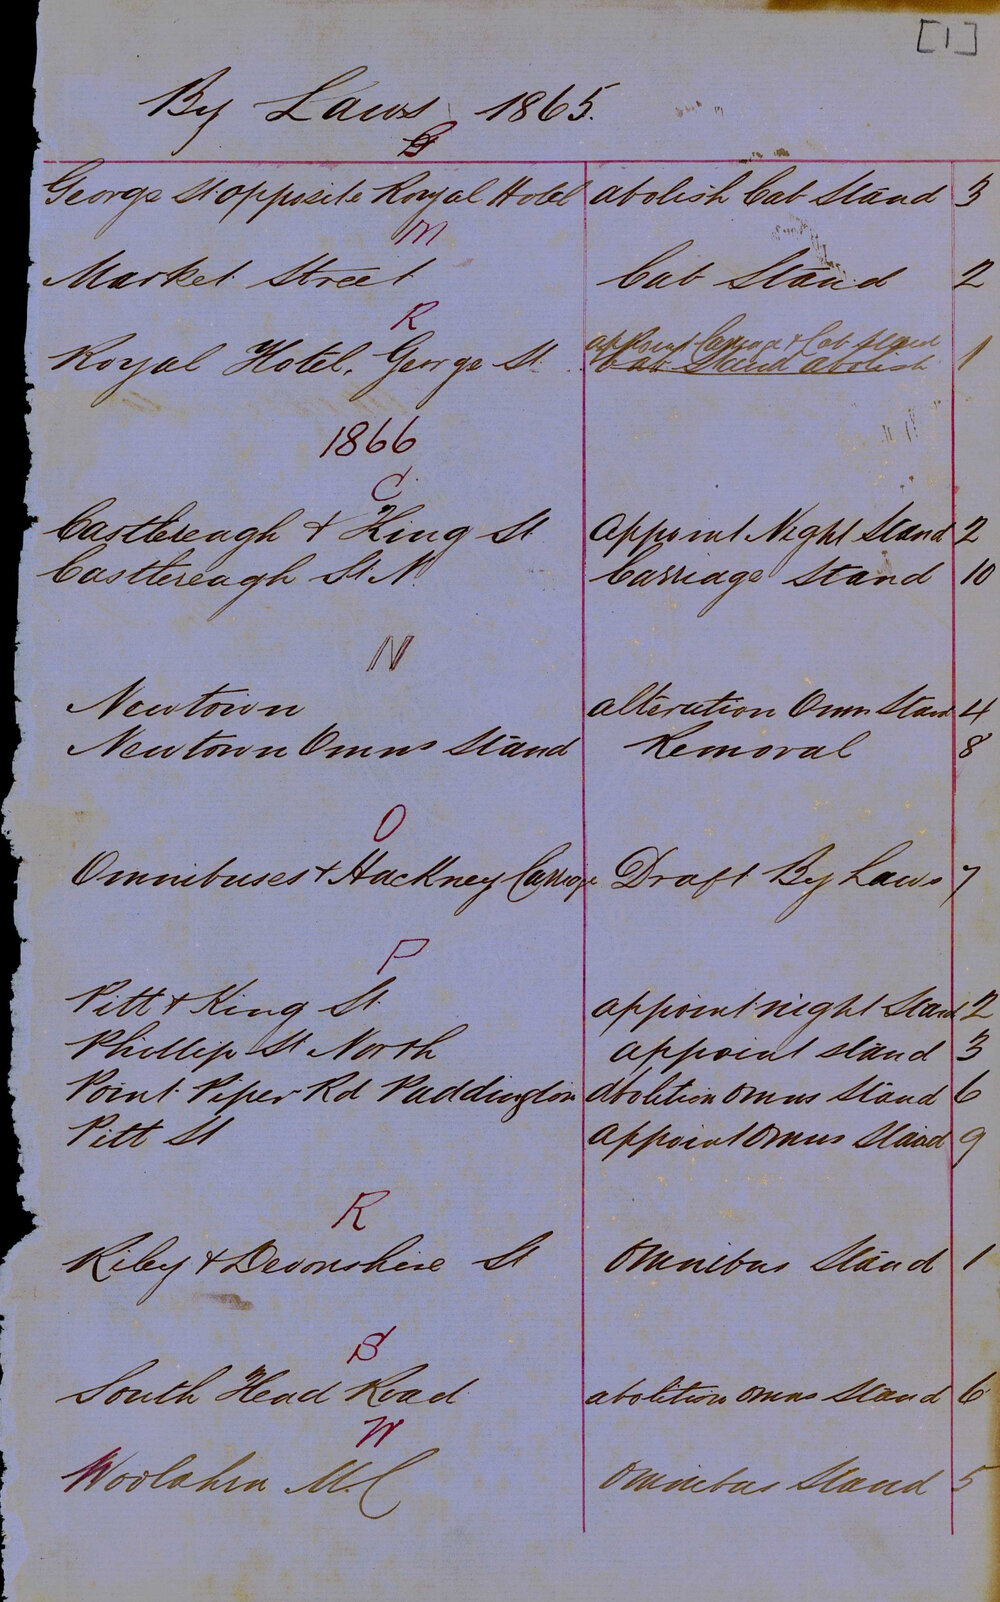 [1]
By Laws 1865.
G
George St. opposite Royal Hotel abolish Cab Stand 3
M
Market Street Cab Stand 2
R
appoint Carriage & Cab Stand
Royal Hotel, George St Cab Stand abolish 1
1866
C
Castlereagh & King St appoint Night Stand 2
Castlereagh St. N. Carriage Stand 10
N
Newtown alteration Omns Stand 4
Newtown Omns Stand Removal 8
O
Omnibuses & Hackney Carriage Draft By Laws 7
P
Pitt & King St. appoint night Stand 2
Phillip St North appoint stand 3
Point Piper Rd Paddington abolition omns Stand 6
Pitt St appoint omns Stand 9
R
Riley & Devonshire St Omnibus Stand 1
S
South Head Road abolition omns Stand 6
W
Woolahra M. C Omnibus Stand 5